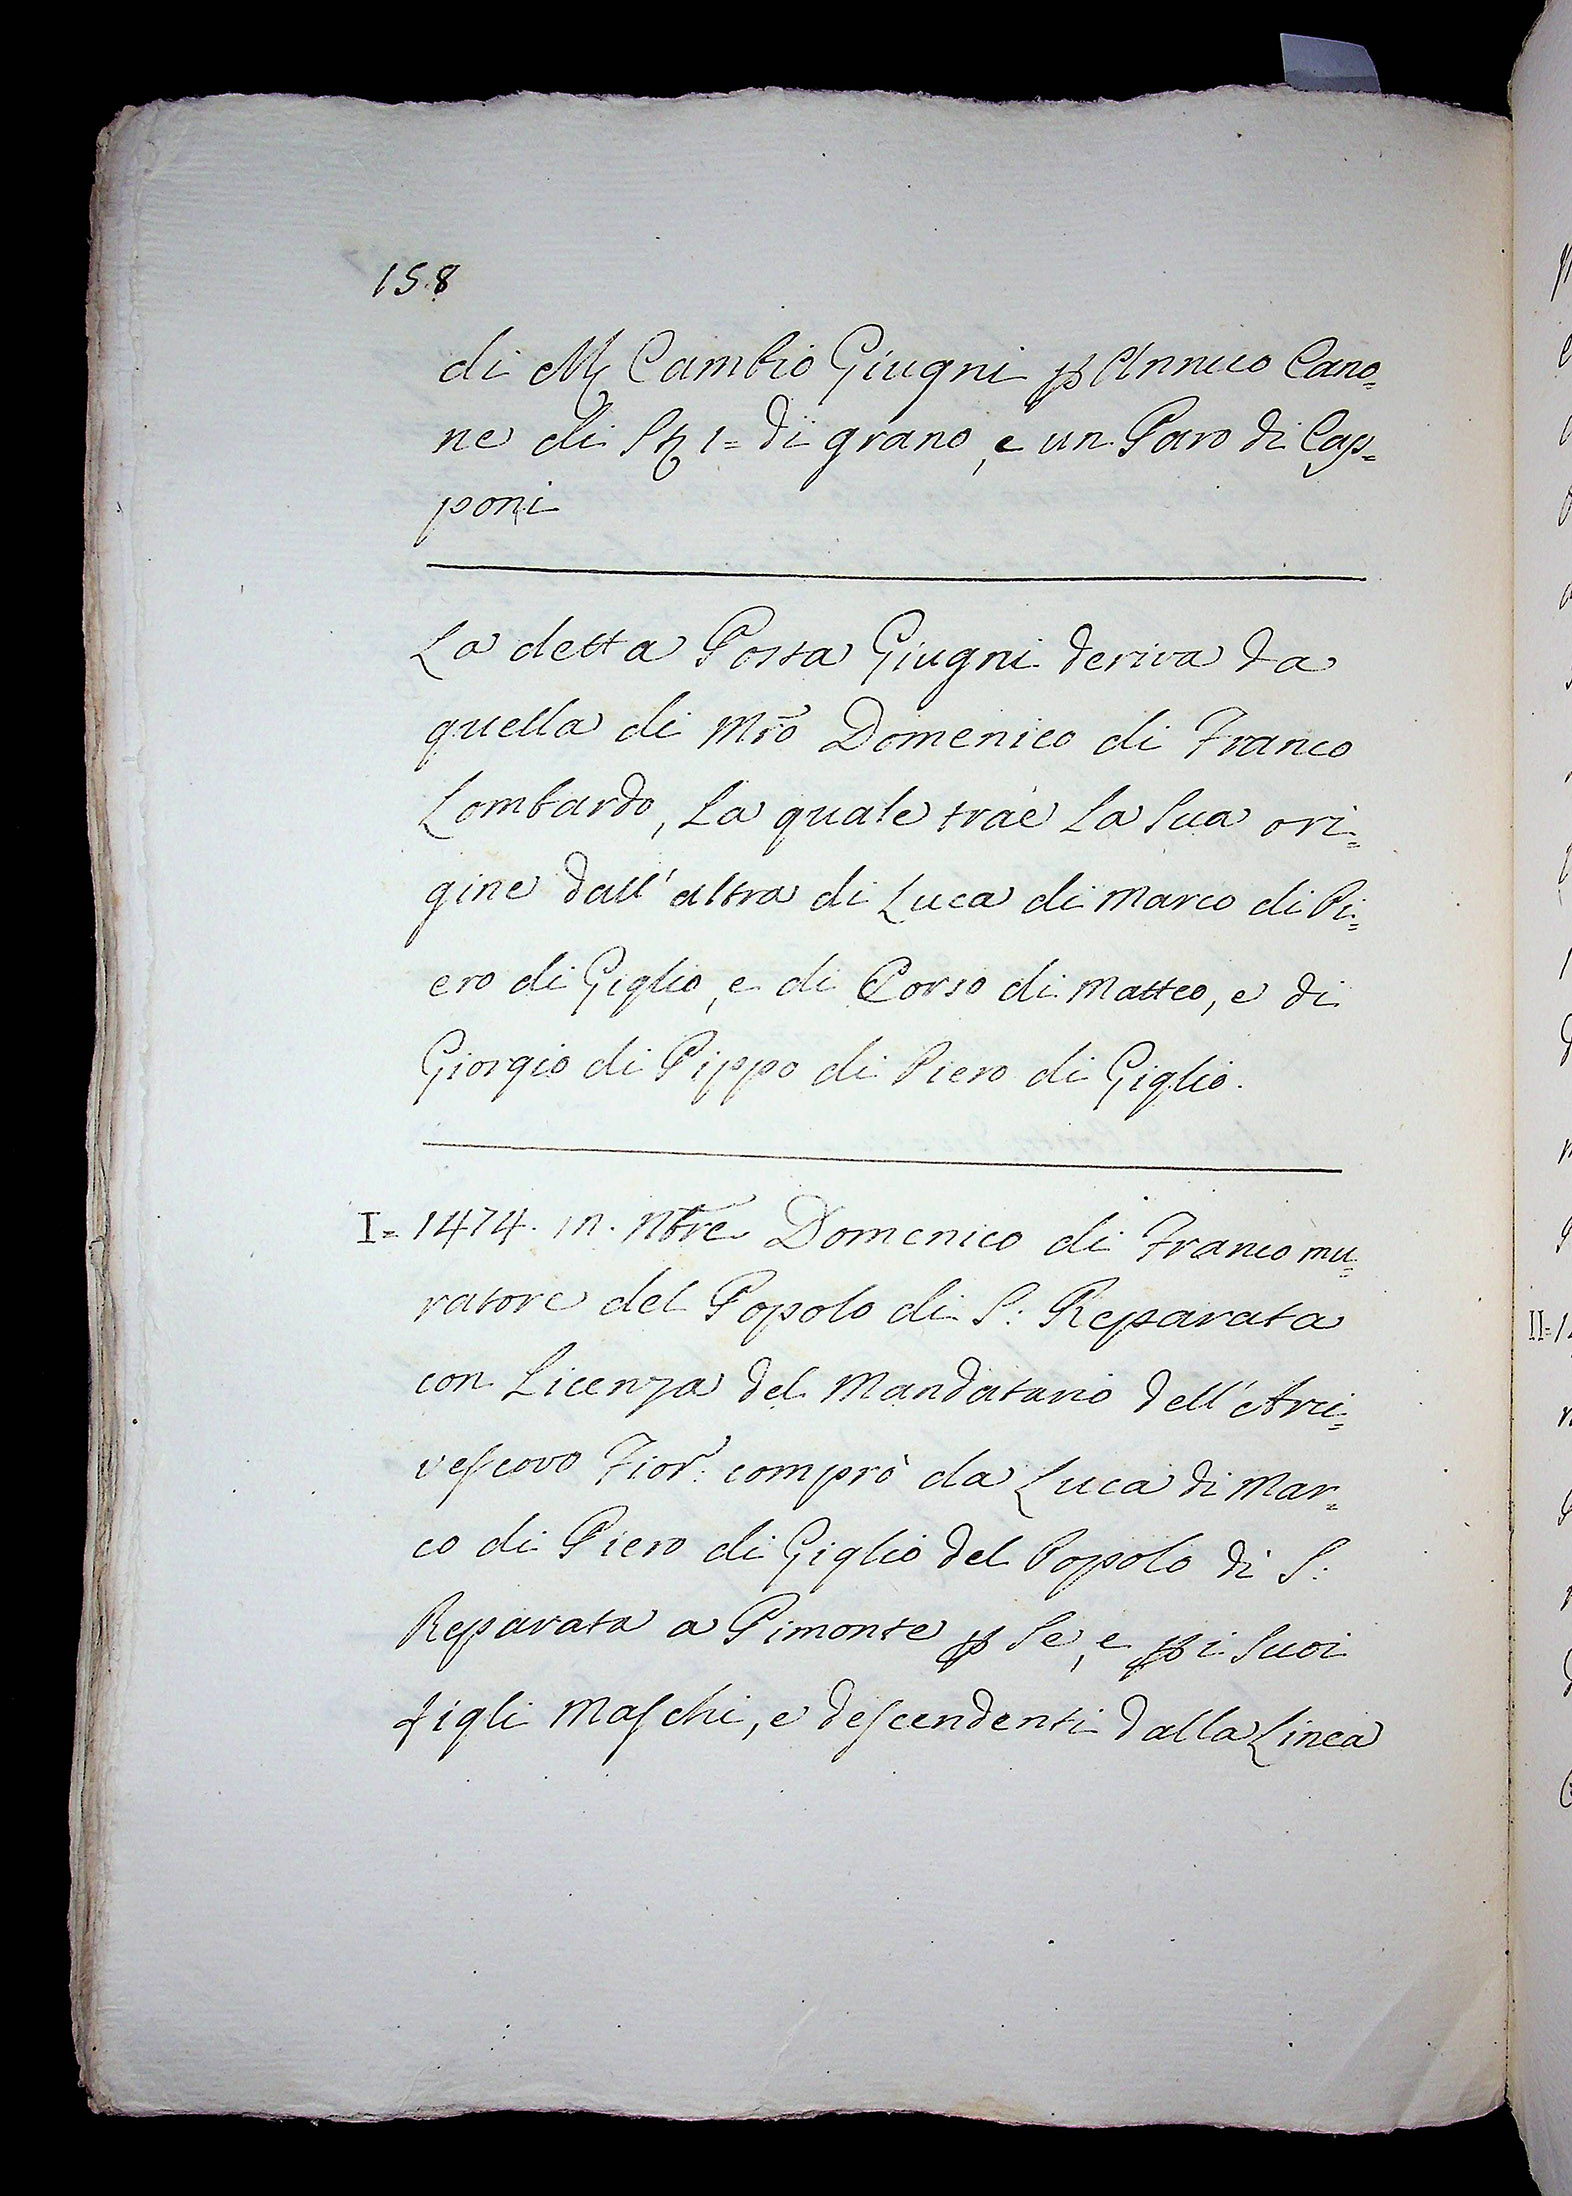 158
di M. Cambio Giugni p Annuo Cano=
ne di St 1= di grano, e un Paro di Cap=
poni
La detta Posta Giugni deriva da
quella di Mro Domenico di Franco
Lombardo, La quale trae La Sua ori=
gine dall' altra di Luca di Marco di Pi=
ero di Giglio, e di Corso di Matteo, e di
Giorgio di Pippo di Piero di Giglio.
I= 1474. in. Nbre Domenico di Franco mu=
ratore del Popolo di S: Reparata
con Licenza del Mandatario dell' Arci=
vescovo Fior: comprò da Luca di Mar=
co di Piero di Giglio del Popolo di S:
Reparata a Pimonte p Se, e p i Suoi
figli Maschi, e descendenti dalla Linea
II=